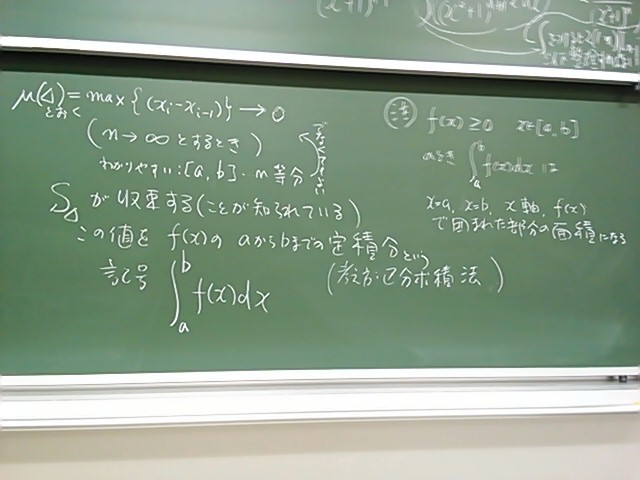 μ(Δ) = max { (x_i − x_{i−1}) } → 0
とおく
( n → ∞ とするとき )
わかりやすい : [a, b] n 等分
S_Δ が 収束する (ことが知られている)
この値を f(x) の a から b までの定積分という
記号 ∫_a^b f(x)dx
(考え方:区分求積法)
注 f(x) ≥ 0 x∈[a, b]
のとき ∫_a^b f(x)dx は
x=a, x=b, x軸, f(x)
で囲まれた部分の面積になる